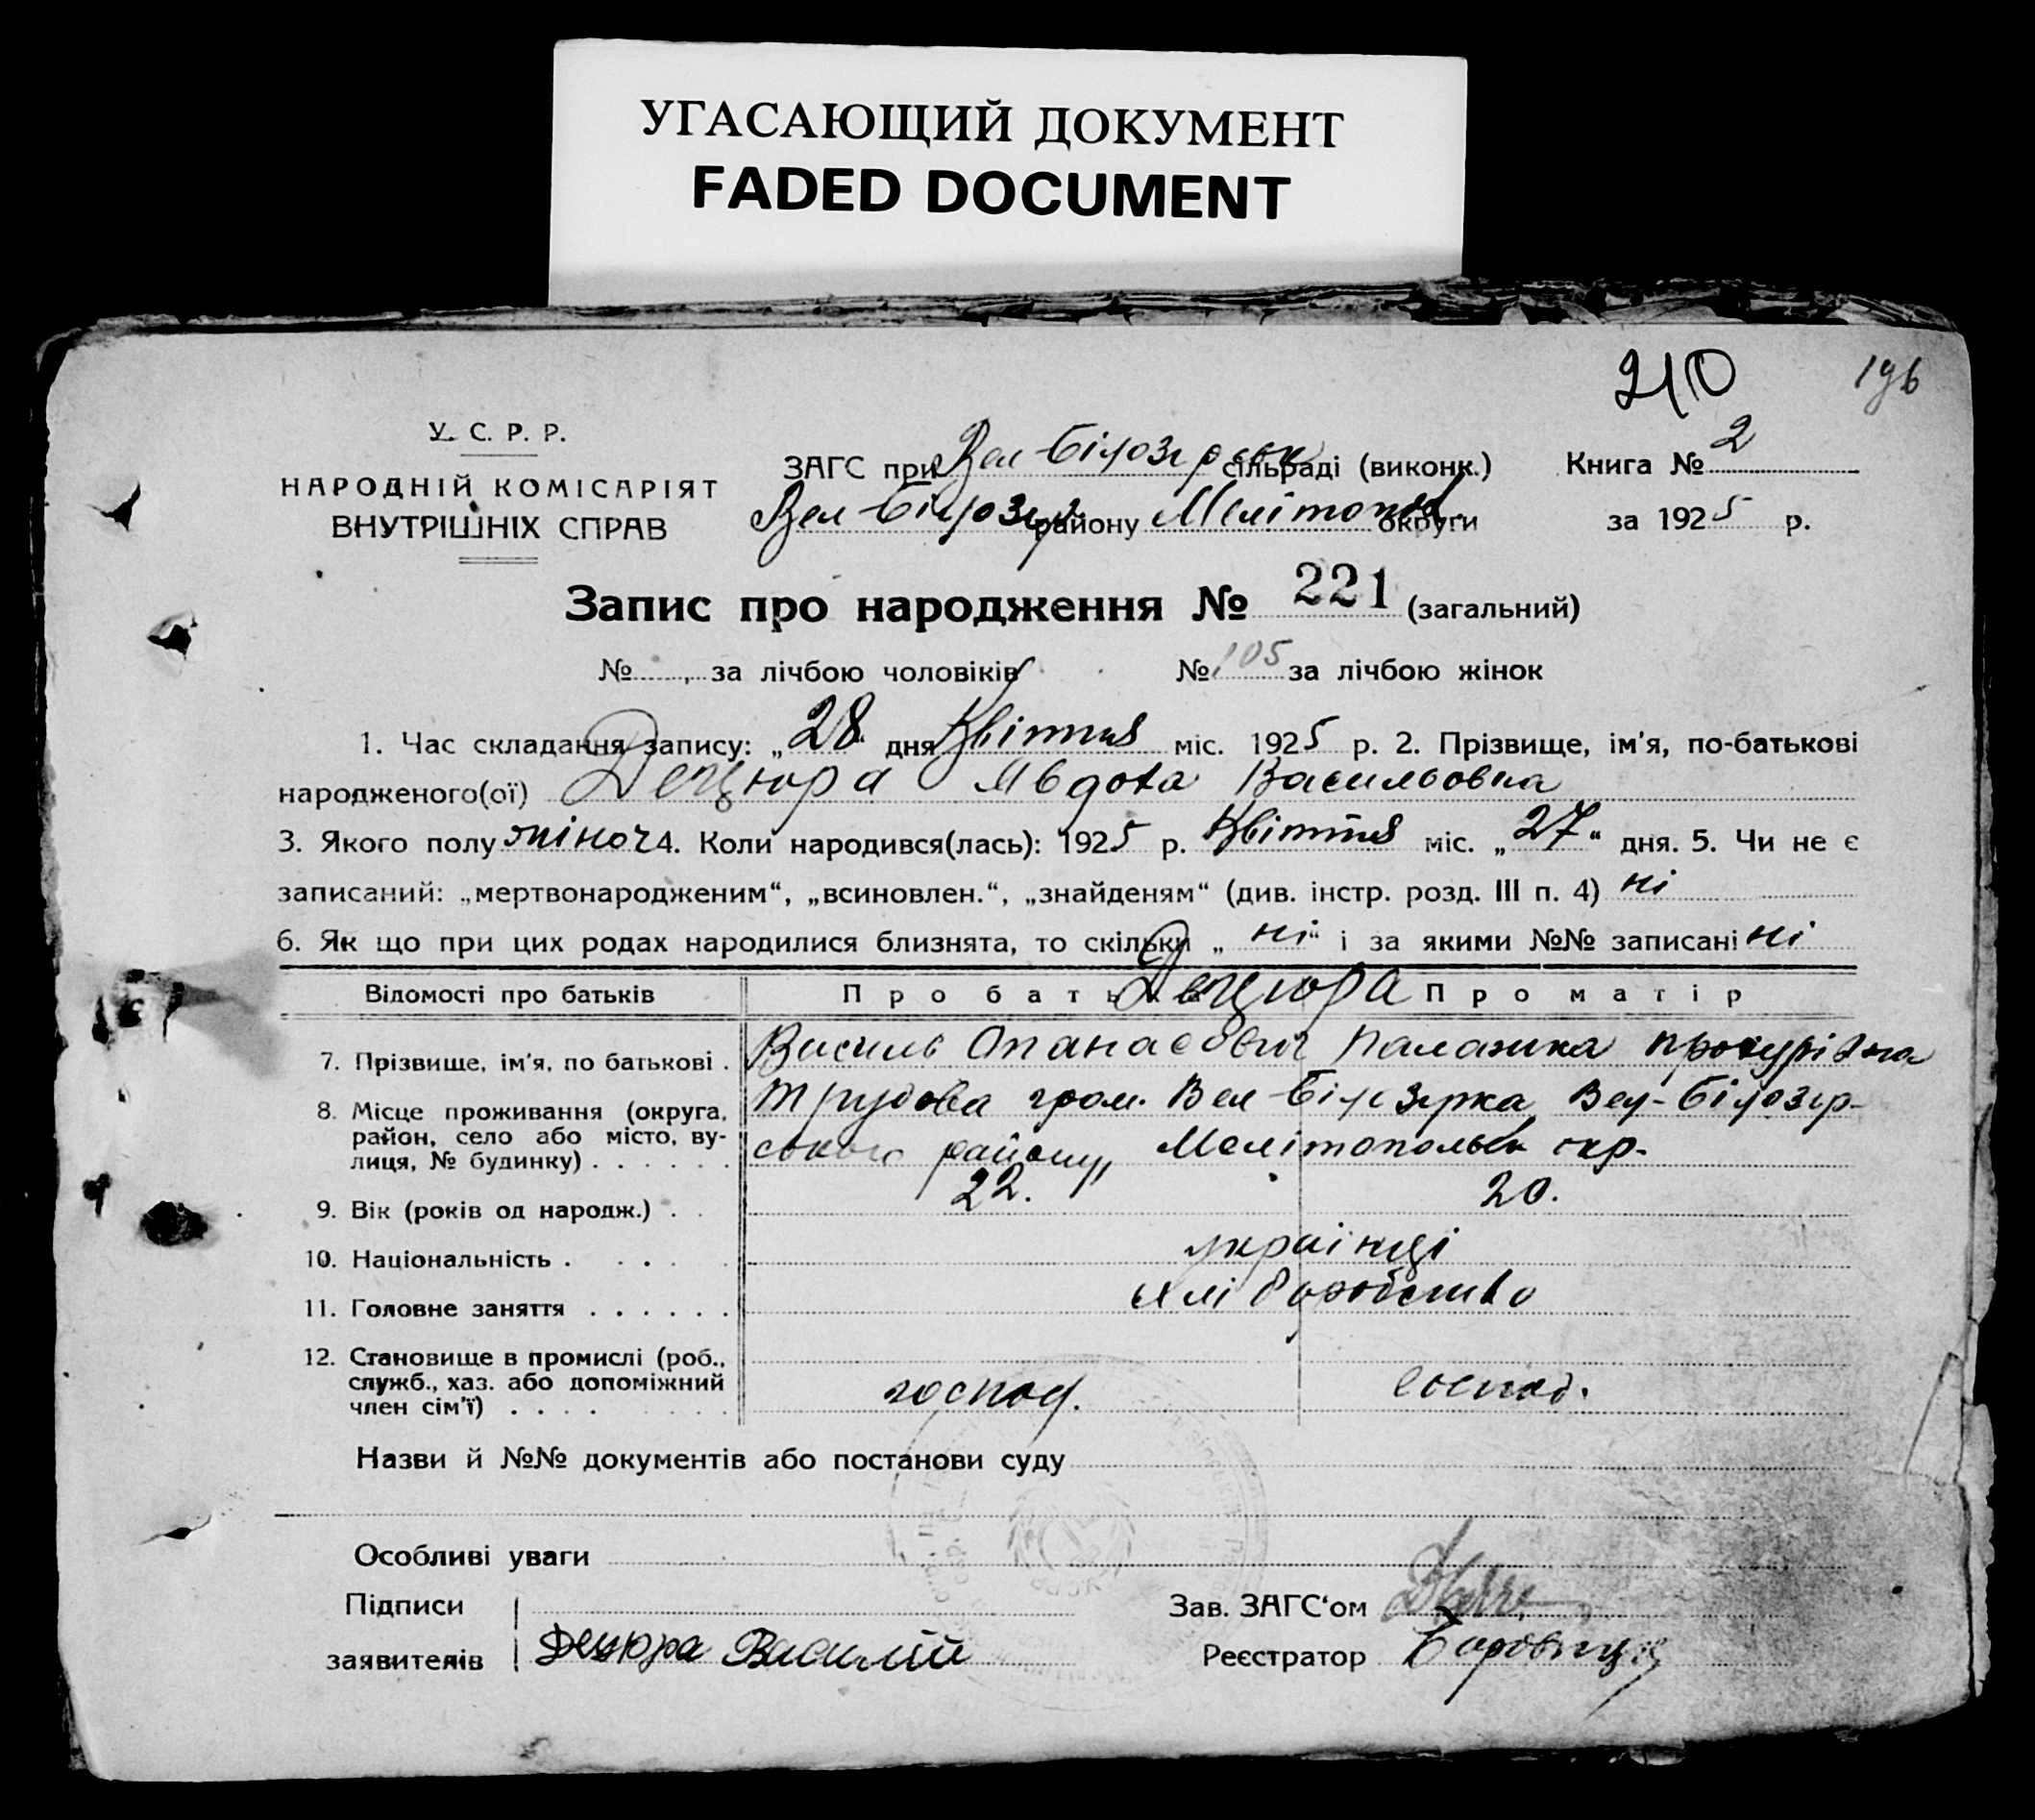 УГАСАЮЩИЙ ДОКУМЕНТ
FADED DOCUMENT
210
196
У. С. Р. Р.
НАРОДНІЙ КОМІСАРІЯТ
ВНУТРІШНІХ СПРАВ
ЗАГС при Вел Білозірськ сільраді (виконк.)
Книга № 2
Вел Білозір району Мелітоп округи
за 1925 р.
Запис про народження № 221 (загальний)
№ за лічбою чоловіків № 105 за лічбою жінок
1. Час складання запису: „28“ дня Квітня міс. 1925 р. 2. Прізвище, ім'я, по-батькові
народженого(ої) Децюра Явдоха Васильовна
3. Якого полу жіноч 4. Коли народився(лась): 1925 р. Квітня міс. „27“ дня. 5. Чи не є
записаний: „мертвонародженим“, „всиновлен.“, „знайденям“ (див. інстр. розд. III п. 4) ні
6. Як що при цих родах народилися близнята, то скільки „ні“ і за якими №№ записані ні
Відомості про батьків Про батька Децюра Про матір
7. Прізвище, ім'я, по батькові . Василь Опанасович Палажка
8. Місце проживання (округа, Трудова гром. Вел-Білозірка Вел-Білозір-
район, село або місто, ву- ського району, Мелітопольськ окр.
лиця, № будинку) . . . . . .
9. Вік (років од народж.) . . 22. 20.
10. Національність . . . . українці
11. Головне заняття . . . . . . хліборобство
12. Становище в промислі (роб.,
служб., хаз. або допоміжний господ. господ.
член сім'ї) . . . .
Назви й №№ документів або постанови суду
Особливі уваги
Підписи
Зав. ЗАГС‘ом
заявителів Децюра Василій
Реєстратор